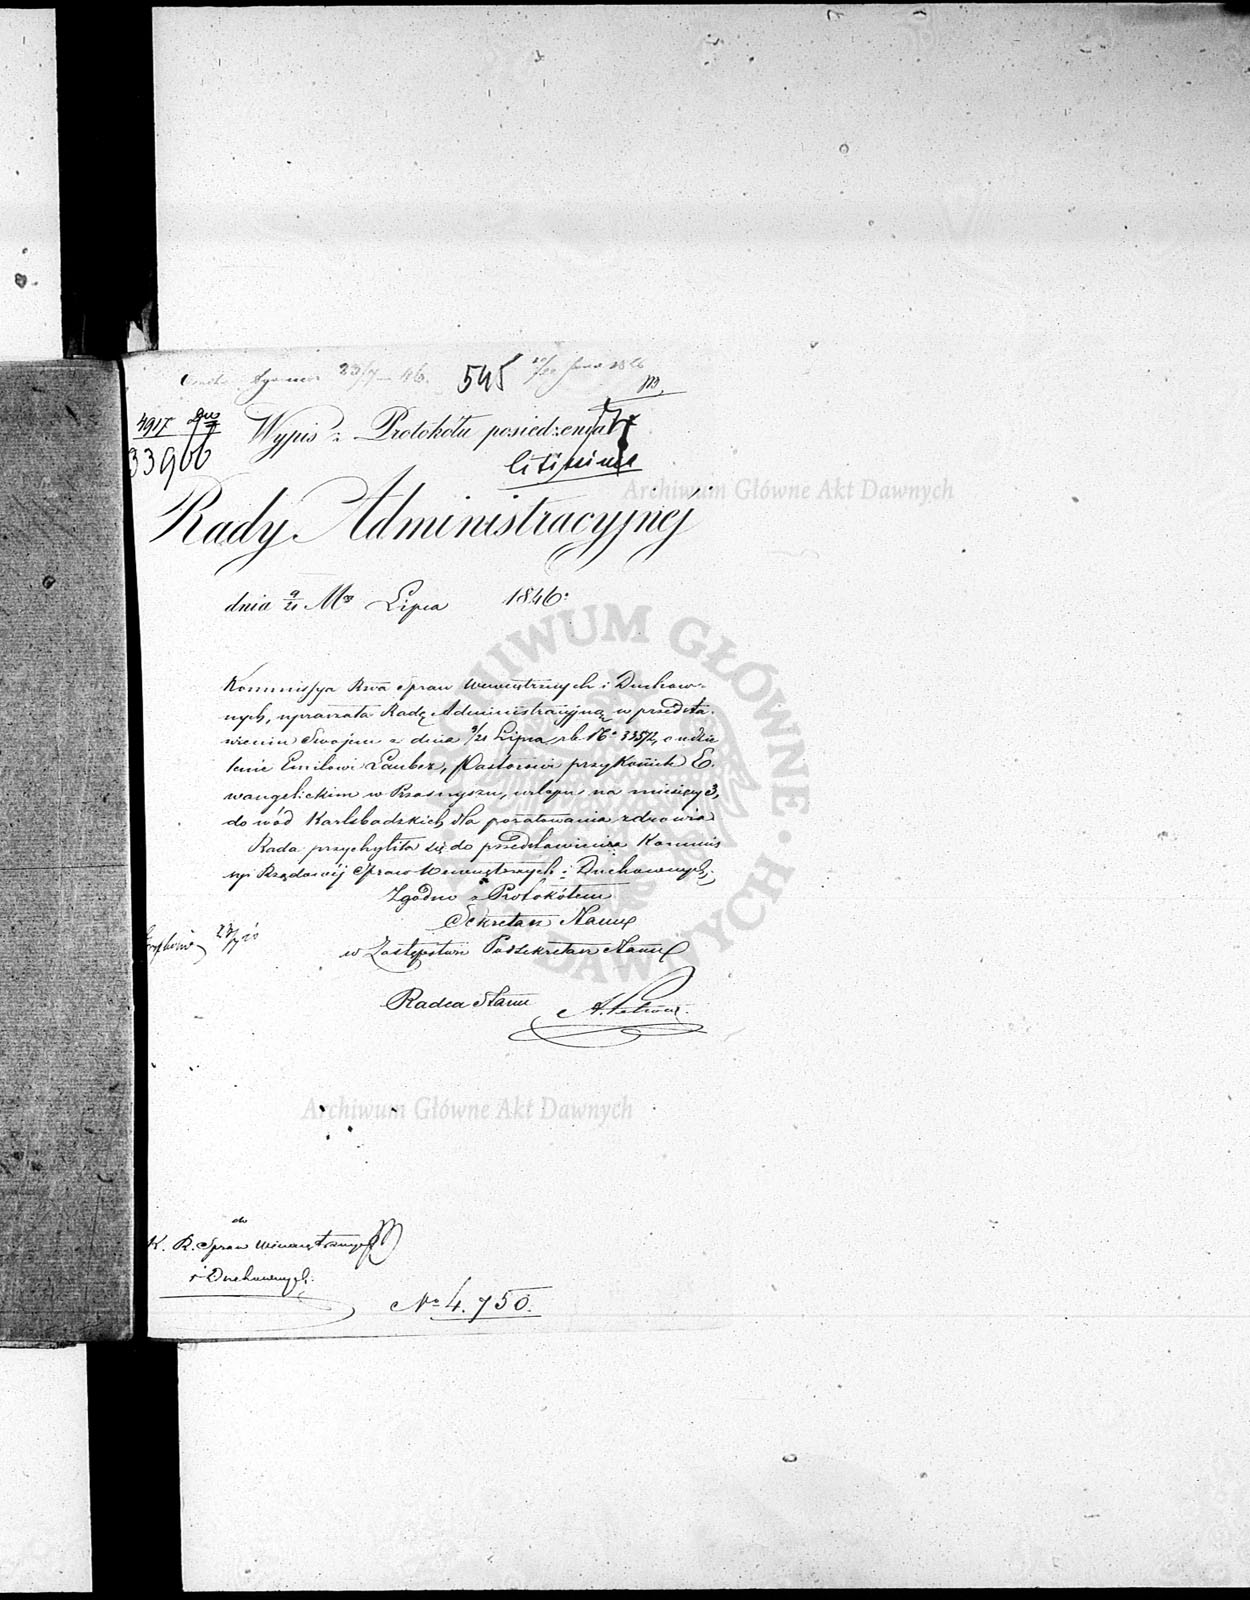 23/7 - 46. 545
4917
33906
Wypis z Protokółu posiedzenia
citissime
Rady Administracyjnej
Archiwum Główne Akt Dawnych
dnia 9/21 Mca Lipca 1846.
Kommissya Rzą Spraw Wewnętrznych i Duchow-
nych, upraszała Radę Administracyjną, w przedsta-
wieniu Swojem z dnia 9/21 Lipca r.b. No 33572, o udzie
lenie Emilowi Laubez, Pastorowi przy Kościele E.
wangelickim w Przasnyszu, urlopu na miesięcy 3,
do wód Karlsbadzkich, dla poratowania zdrowia
Rada przychyliła się do przedstawienia Kommis
syi Rządowéj Spraw Wewnętrznych i Duchownych.
Zgodno z Protokółem
Sekretarz Stanu
w Zastępstwie Podsekretarz Stanu
23/7
Radca Stanu
ARCHIWUM GŁÓWNE AKT DAWNYCH
Archiwum Główne Akt Dawnych
do
K. R. Spraw Wewnętrznych
i Duchownych.
No 4.750.